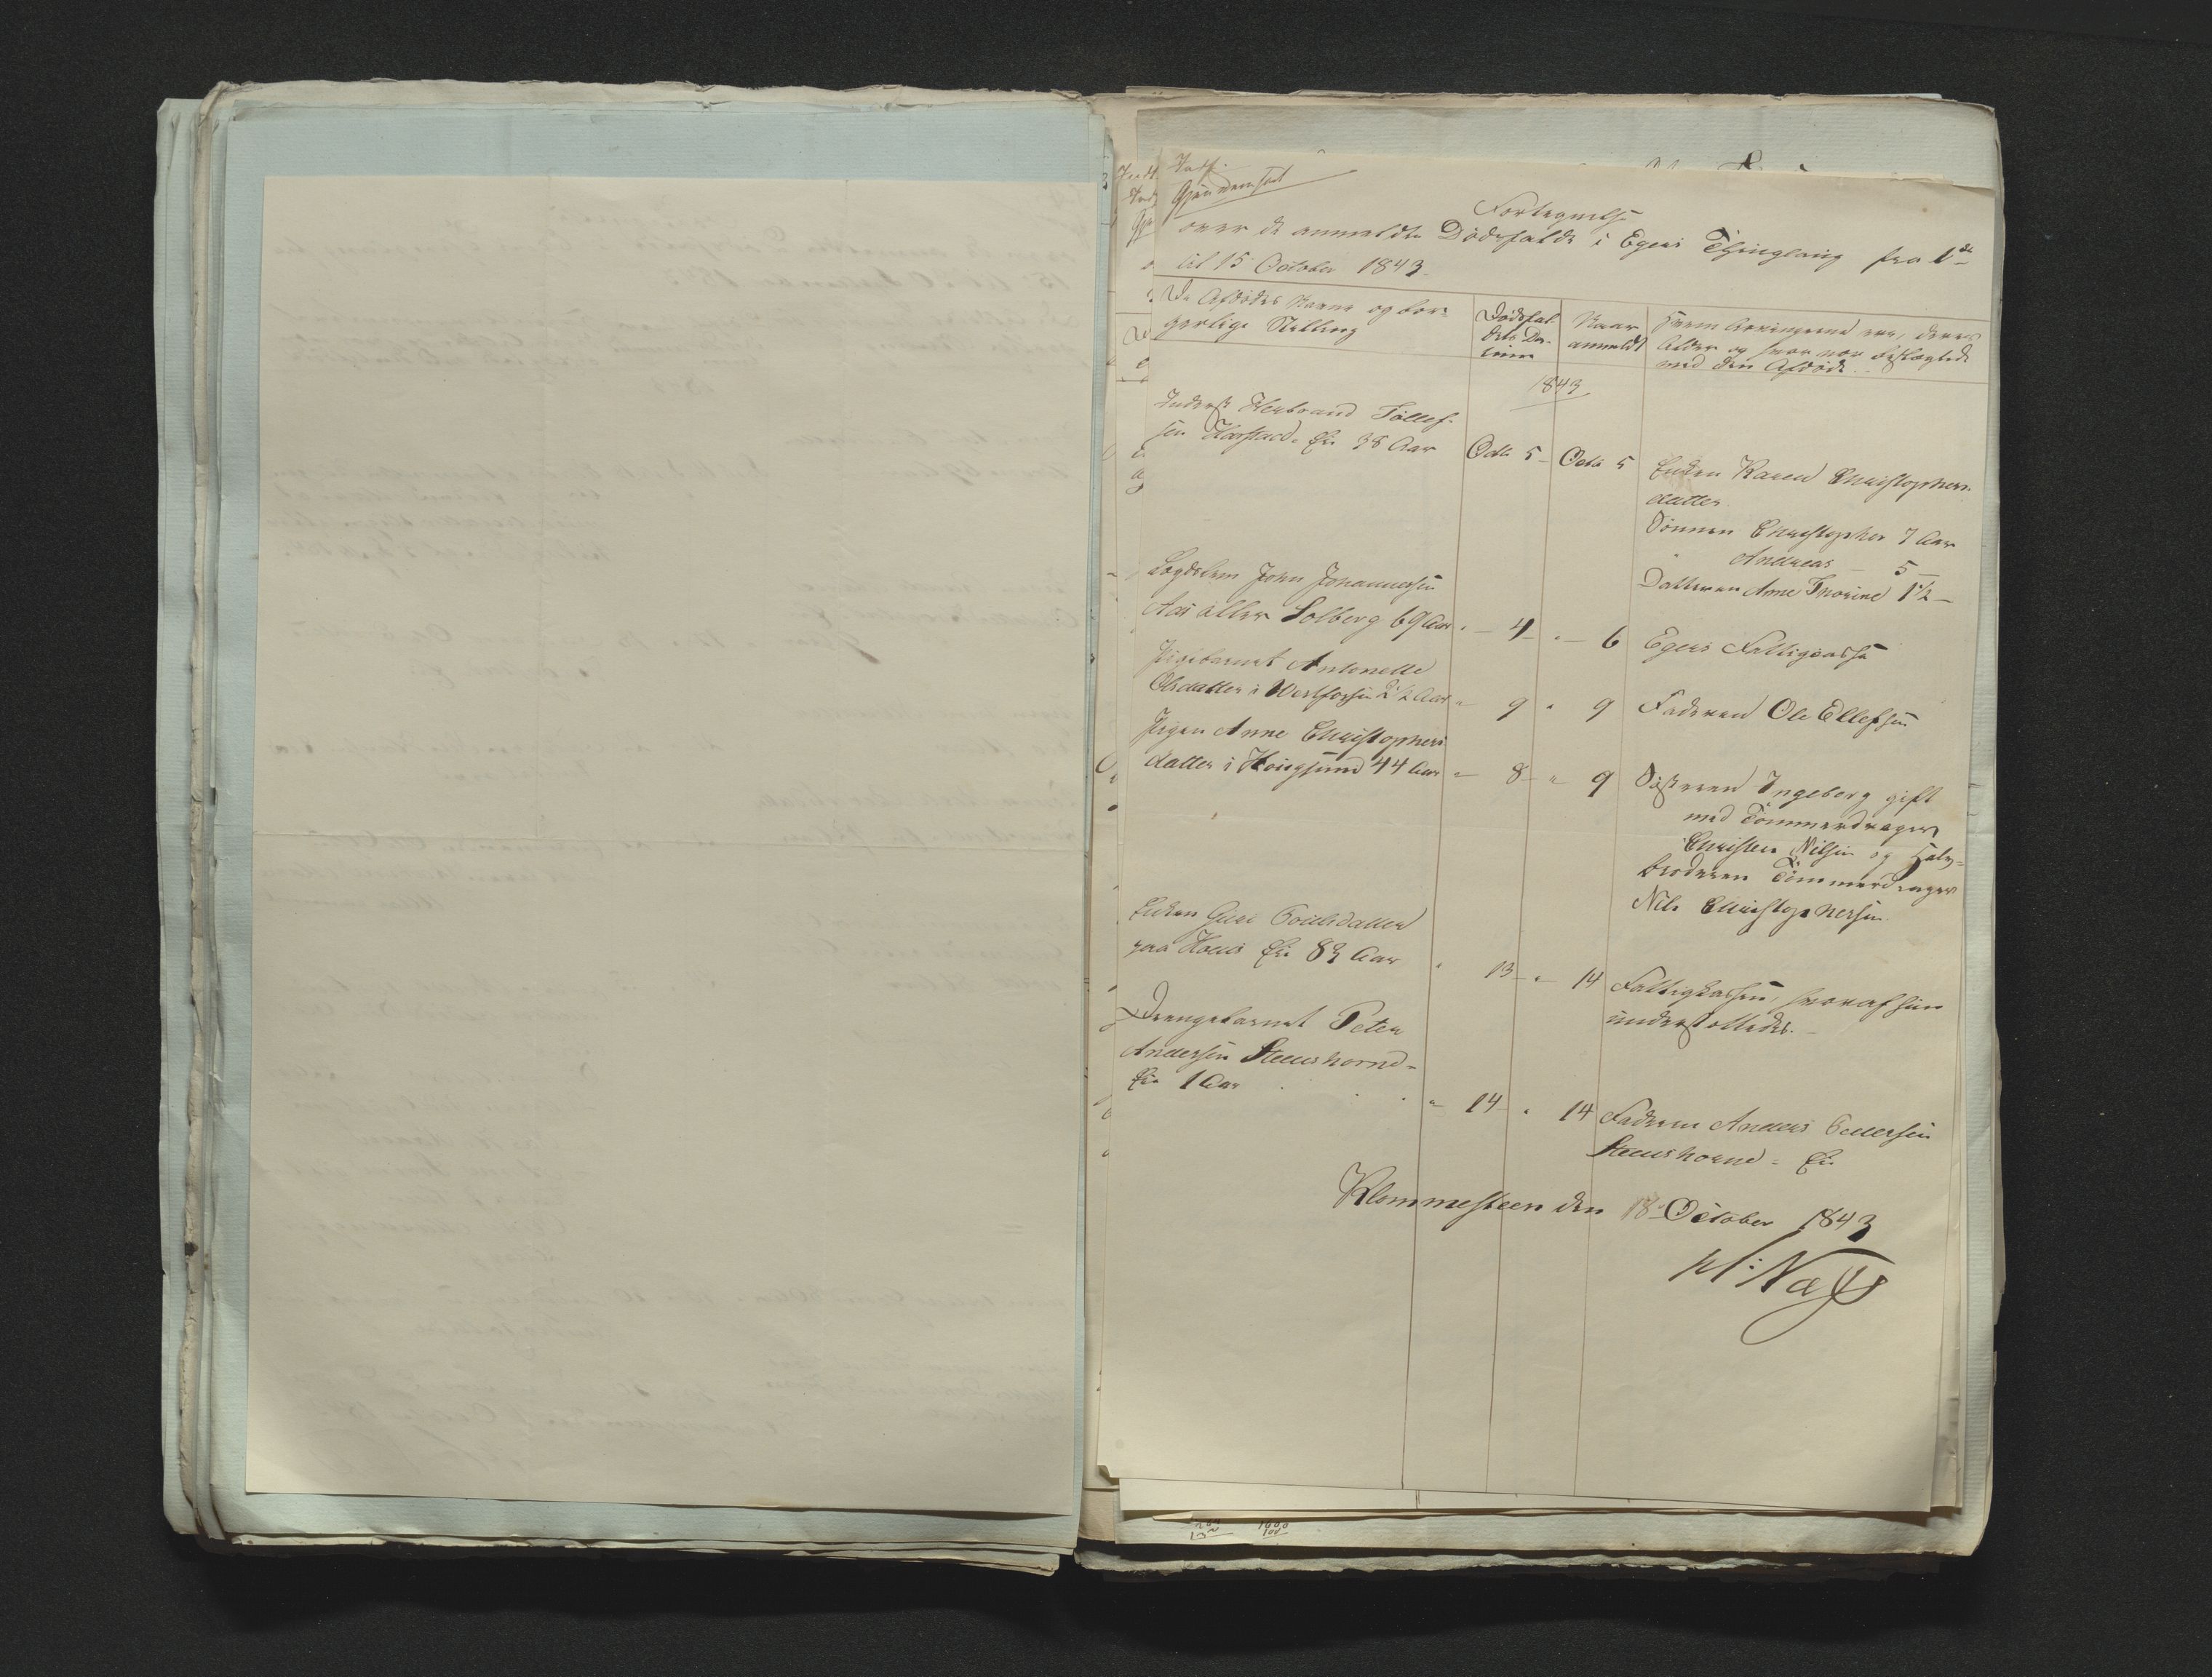 Indf.
Gjennemseet
Fortegnelse
over de anmeldte Dødsfalde i Egers Thinglaug fra 1ste
til 15 October 1843
De Afdødes Navne og bor-
gerlige Stilling
Dødsfal-
dets Da-
tum
Naar
anmeldt
Hvem Arvingerne ere, deres
Alder og hvor nær beslægtede
med den Afdøde
1843
Inderst Herbrand Tollef-
sen Harstad. Ei. 38 Aar
Octb 5 Octb 5
Enken Karen Christophers-
datter
Sønnen Christopher 7 Aar
Andreas 5 —
Datteren Anne Thorine 1½ —
Lægdslem John Johannesen
Aas eller Solberg 69 Aar
" 4 " 6
Egers Fattigcasse
Pigebarnet Antonette
Olsdatter i Vestfossen 2½ Aar
" 9 " 9
Faderen Ole Ellefsen
Pigen Anne Christophers
datter i Hougsund 44 Aar
" 8 " 9
Søsteren Ingeborg gift
med Tømmerdrager
Christen Nilsen og Halv-
broderen Tømmerdrager
Nils Christophersen
Enken Guri Poulsdatter
paa Ei. 83 Aar
" 13 " 14
Fattigkassen, hvoraf hun
understøttedes.
Drengebarnet Peter
Andersen Steenshorne-
Ei. 1 Aar
" 14 " 14
Faderen Anders Pedersen
Steenshorne- Ei.
Klommesteen den 18 October 1843